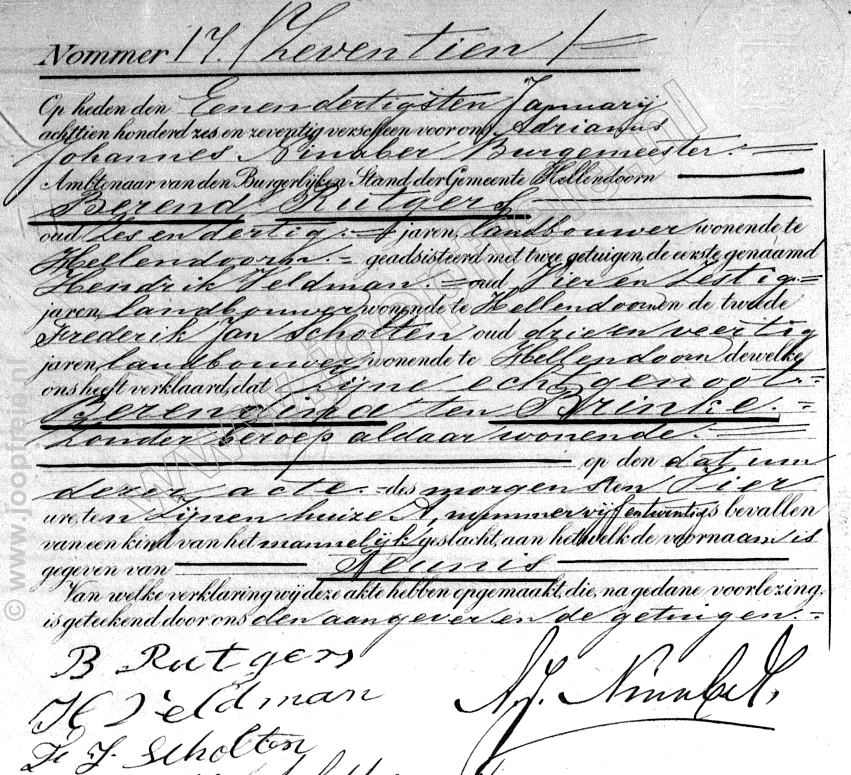 Nommer 17. (Zeventien)
Op heden den Eenendertigsten January
achttien honderd zes en zeventig verscheen voor ons Adrianus
Johannes Ninaber Burgemeester.
Ambtenaar van den Burgerlijken Stand der Gemeente Hellendoorn
Berend Rutgers
oud Zes en dertig jaren, landbouwer wonende te
Hellendoorn. geadsisteerd met twee getuigen, de eerste genaamd
Hendrik Veldman. oud Vier en Zestig
jaren, landbouwer wonende te Hellendoorn en de tweede
Frederik Jan Scholten oud drie en veertig
jaren, landbouwer wonende te Hellendoorn dewelke
ons heeft verklaard, dat Zijne echtgenoot
Berendina ten Brinke.
Zonder beroep aldaar wonende.
op den datum
dezer acte. des morgens ten Vier
ure, ten Zijnen huize A, nummer vijf en twintig is bevallen
van een kind van het mannelijk geslacht, aan hetwelk de voornaam is
gegeven van Teunis
Van welke verklaring wij deze akte hebben opgemaakt, die, na gedane voorlezing,
is geteekend door ons den aangever en de getuigen.
B Rutgers
H Veldman
A.J. Ninaber
Fr J. Scholten
© www.joopfreie.nl
www.joopfreie.nl